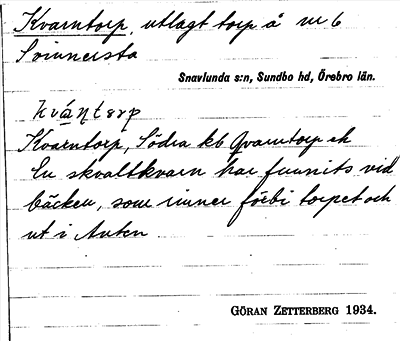 Kvarntorp, utlagt torp å nr 6
Svinnersta
Snavlunda s:n, Sundbo hd, Örebro län.
kvántorp
Kvarntorp, Södra kb Qvarntorp ek
En skvaltkvarn har funnits vid
bäcken, som rinner förbi torpet och
ut i Anten
GÖRAN ZETTERBERG 1934.